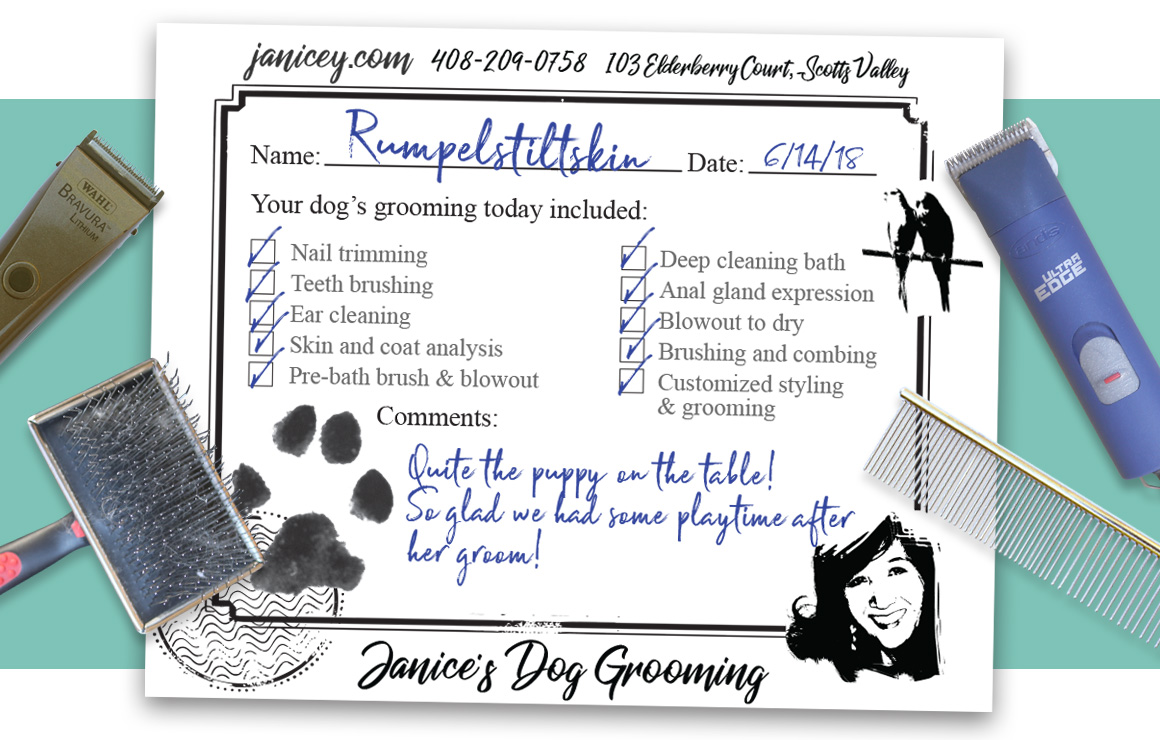 janicey.com 408-209-0758 103 Elderberry Court, Scotts Valley
Name: Rumpelstiltskin Date: 6/14/18
Your dog's grooming today included:
Nail trimming
Teeth brushing
Ear cleaning
Skin and coat analysis
Pre-bath brush & blowout
Deep cleaning bath
Anal gland expression
Blowout to dry
Brushing and combing
Customized styling
& grooming
Comments:
Quite the puppy on the table!
So glad we had some playtime after
her groom!
Janice's Dog Grooming
WAHL
BRAVURA
LITHIUM
andis
ULTRA
EDGE